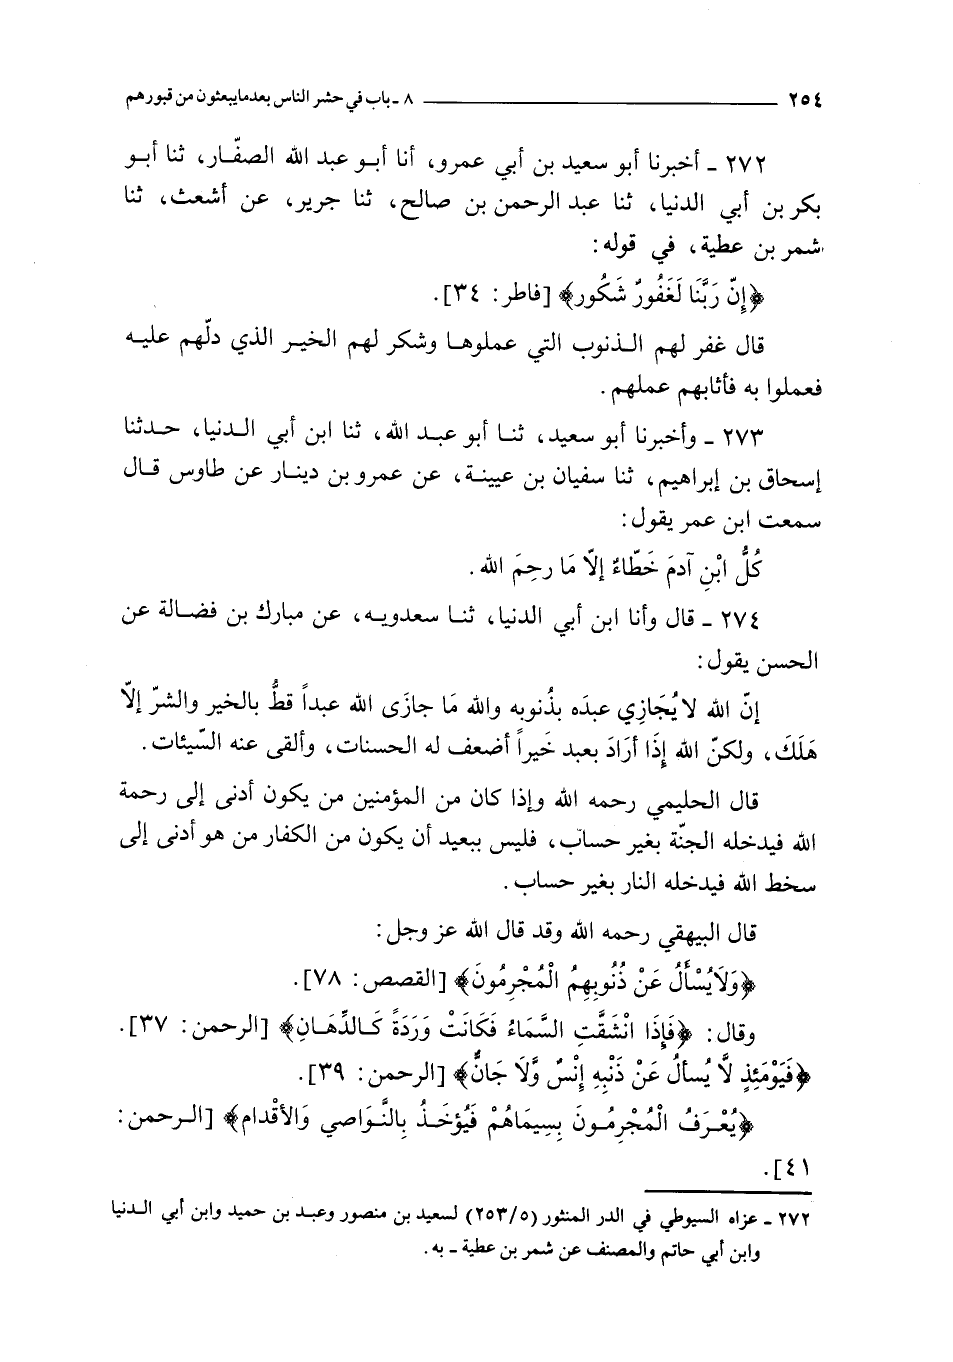 ٢٥٤ ــــــــ ٨ ـ باب في حشر الناس بعدما يبعثون من قبورهم
٢٧٢ ـ أخبرنا أبو سعيد بن أبي عمرو، أنا أبـو عبد الله الصفّـار، ثنا أبـو
بكر بن أبي الدنيا، ثنا عبد الرحمن بن صالح، ثنا جرير، عن أشعث، ثنا
شمر بن عطية، في قوله:
﴿إِنّ رَبَّنَا لَغَفُورٌ شَكُور﴾ [فاطر: ٣٤].
قال غفر لهم الـذنوب التي عملوهـا وشكر لهم الخيـر الذي دلّهم عليـه
فعملوا به فأثابهم عملهم.
٢٧٣ ـ وأخبرنا أبو سعيد، ثنـا أبو عبـد الله، ثنا ابن أبي الـدنيا، حـدثنا
إسحاق بن إبراهيم، ثنا سفيان بن عيينـة، عن عمرو بن دينـار عن طاوس قـال
سمعت ابن عمر يقول:
كُلُّ ابْنِ آدمَ خَطّاءٌ إلاّ مَا رحِمَ الله.
٢٧٤ ـ قال وأنا ابن أبي الدنيا، ثنـا سعدويـه، عن مبارك بن فضـالة عن
الحسن يقول:
إنّ الله لا يُجَازِي عبدَه بذُنوبه والله مَا جازَى الله عبداً قطُّ بالخير والشرّ إلاّ
هَلَكَ، ولكنّ الله إذَا أرَادَ بعبد خَيراً أضعف له الحسنات، وألقى عنه السّيئات.
قال الحليمي رحمه الله وإذا كان من المؤمنين من يكون أدنى إلى رحمة
الله فيدخله الجنّة بغير حساب، فليس ببعيد أن يكون من الكفار من هو أدنى إلى
سخط الله فيدخله النار بغير حساب.
قال البيهقي رحمه الله وقد قال الله عز وجل:
﴿وَلَا يُسْأَلُ عَنْ ذُنُوبِهِمُ الْمُجْرِمُونَ﴾ [القصص: ٧٨].
وقال: ﴿فَإِذَا انْشَقَّتِ السَّمَاءُ فَكَانَتْ وَرَدَةً كَـالدِّهَـانِ﴾ [الرحمن: ٣٧].
﴿فَيَوْمَئِذٍ لَّا يُسألُ عَنْ ذَنْبِهِ إنْسٌ وَّلَا جَانٌّ﴾ [الرحمن: ٣٩].
﴿يُعْـرَفُ الْمُجْرِمُـونَ بِسِيمَاهُمْ فَيُؤخَـذُ بِالنَّـوَاصي وَالأقْدام﴾ [الـرحمن:
٤١].
٢٧٢ ـ عزاه السيوطي في الدر المنثور (٢٥٣/٥) لسعيد بن منصور وعبـد بن حميد وابن أبي الـدنيا
وابن أبي حاتم والمصنف عن شمر بن عطية ـ به.